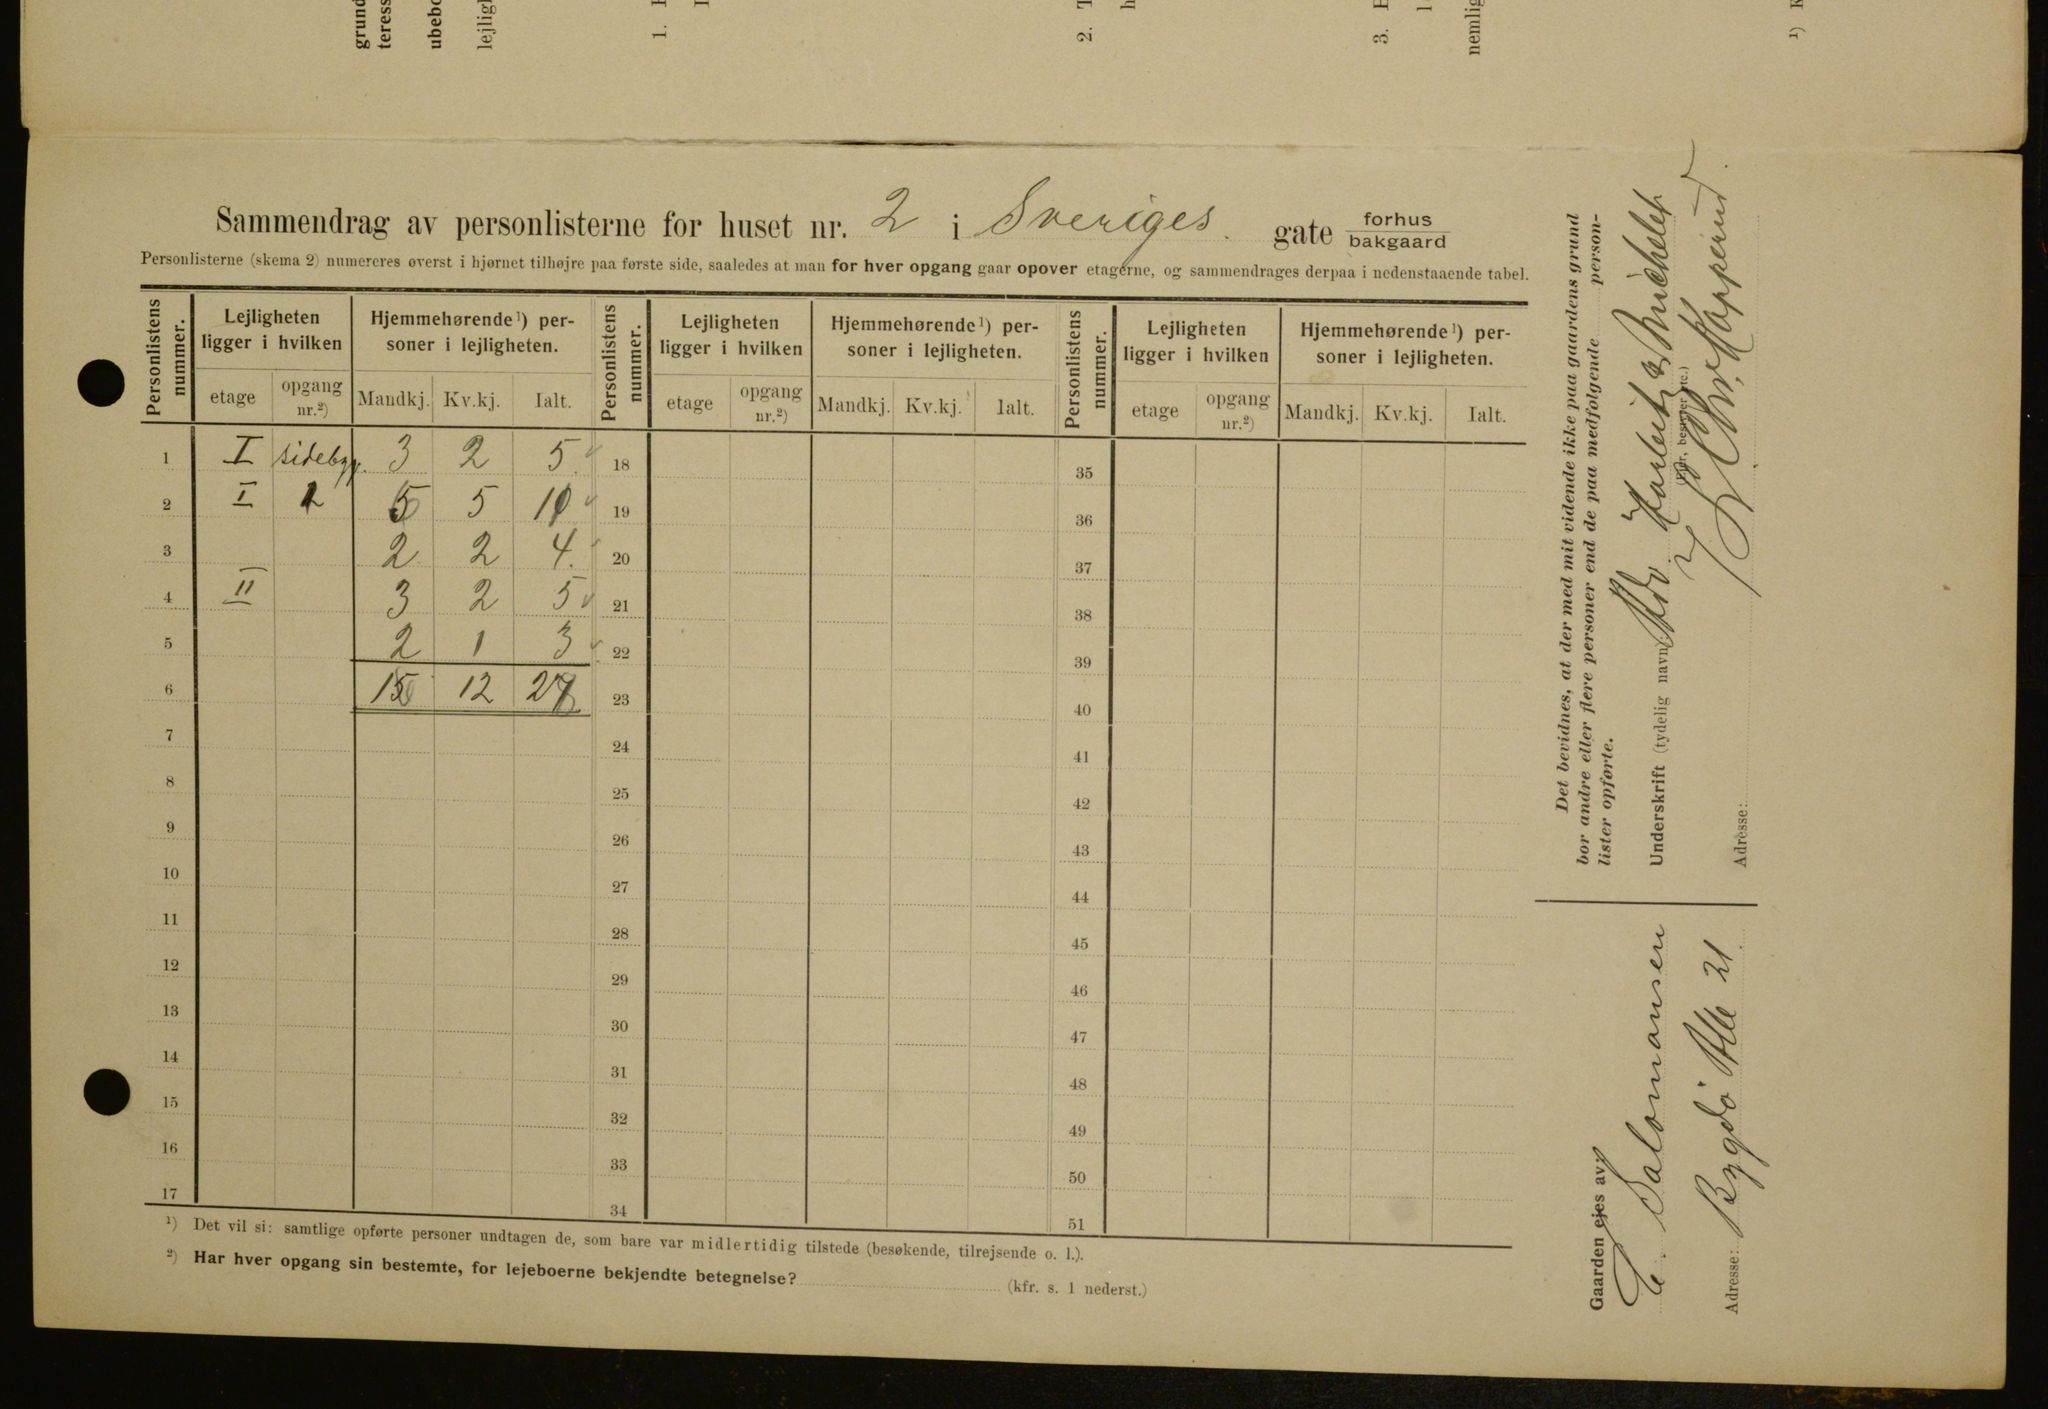 grund
teress
ubebo
lejligh
1.
2.
3.
nemlig
1)
Sammendrag av personlisterne for huset nr. 2 i Sveriges gate forhus
bakgaard
Personlisterne (skema 2) numereres øverst i hjørnet tilhøjre paa første side, saaledes at man for hver opgang gaar opover etagerne, og sammendrages derpaa i nedenstaaende tabel.
Personlistens nummer. Lejligheten ligger i hvilken Hjemmehørende 1) personer i lejligheten. Personlistens nummer. Lejligheten ligger i hvilken Hjemmehørende 1) personer i lejligheten. Personlistens nummer. Lejligheten ligger i hvilken Hjemmehørende 1) personer i lejligheten.
etage opgang nr.2) Mandkj. Kv.kj. Ialt. etage opgang nr.2) Mandkj. Kv.kj. Ialt. etage opgang nr.2) Mandkj. Kv.kj. Ialt.
1 I sidebyg. 3 2 5 18 35
2 I 1 5 5 10 19 36
3 2 2 4 20 37
4 II 3 2 5 21 38
5 2 1 3 22 39
6 15 12 27 23 40
7 24 41
8 25 42
9 26 43
10 27 44
11 28 45
12 29 46
13 30 47
14 31 48
15 32 49
16 33 50
17 34 51
1) Det vil si: samtlige opførte personer undtagen de, som bare var midlertidig tilstede (besøkende, tilrejsende o. l.).
2) Har hver opgang sin bestemte, for lejeboerne bekjendte betegnelse? (kfr. s. 1 nederst.)
Det bevidnes, at der med mit vidende ikke paa gaardens grund
bor andre eller flere personer end de paa medfølgende person-
lister opførte.
Underskrift (tydelig navn) Adv. Harbitz & Michelet
(Eier, bestyrer etc.)
Chr. Kopperud
Adresse:
Gaarden ejes av:
C. Salomansen
Adresse: Bygdø Alle 21